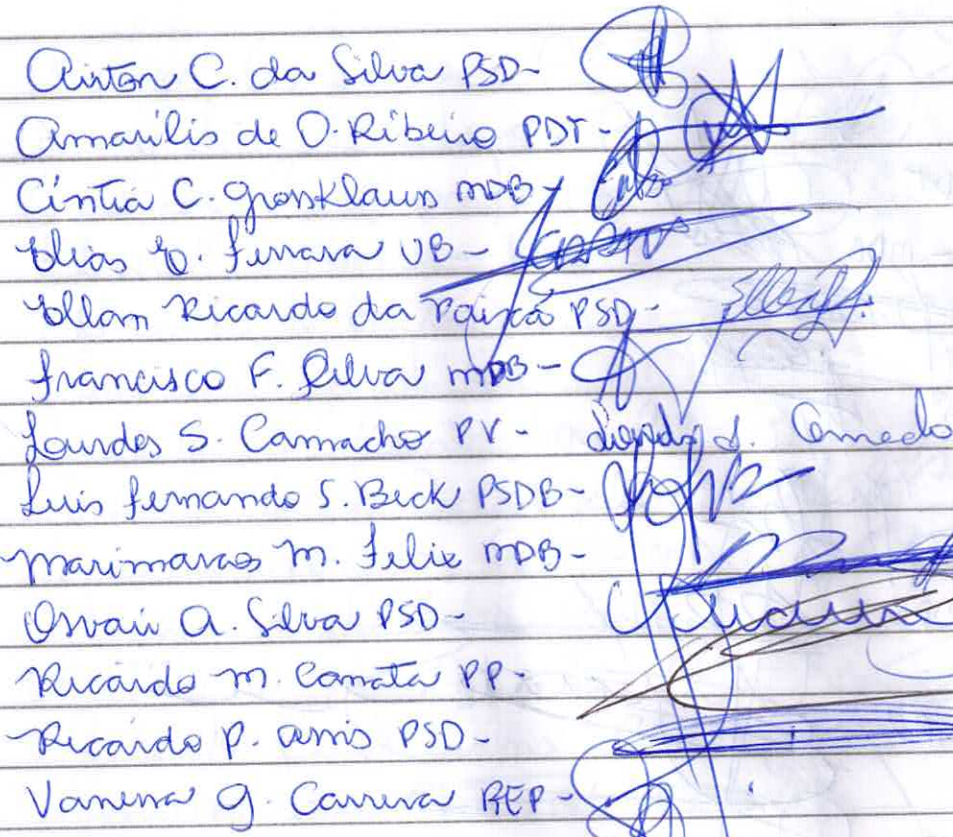 Airton C. da Silva PSD-
Amarilis de O. Ribeiro PDT-
Cíntia C. Grosklaus MDB-
Elias E. Ferrara UB-
Ellom Ricardo da Paixão PSD-
Francisco F. Silva MDB-
Lourdes S. Camacho PV- Lourdes S. Camacho
Luis Fernando S. Beck PSDB-
Marimarcos M. Felix MDB-
Osvair A. Silva PSD-
Ricardo M. Canata PP-
Ricardo P. Assis PSD-
Vanessa G. Carrera REP-